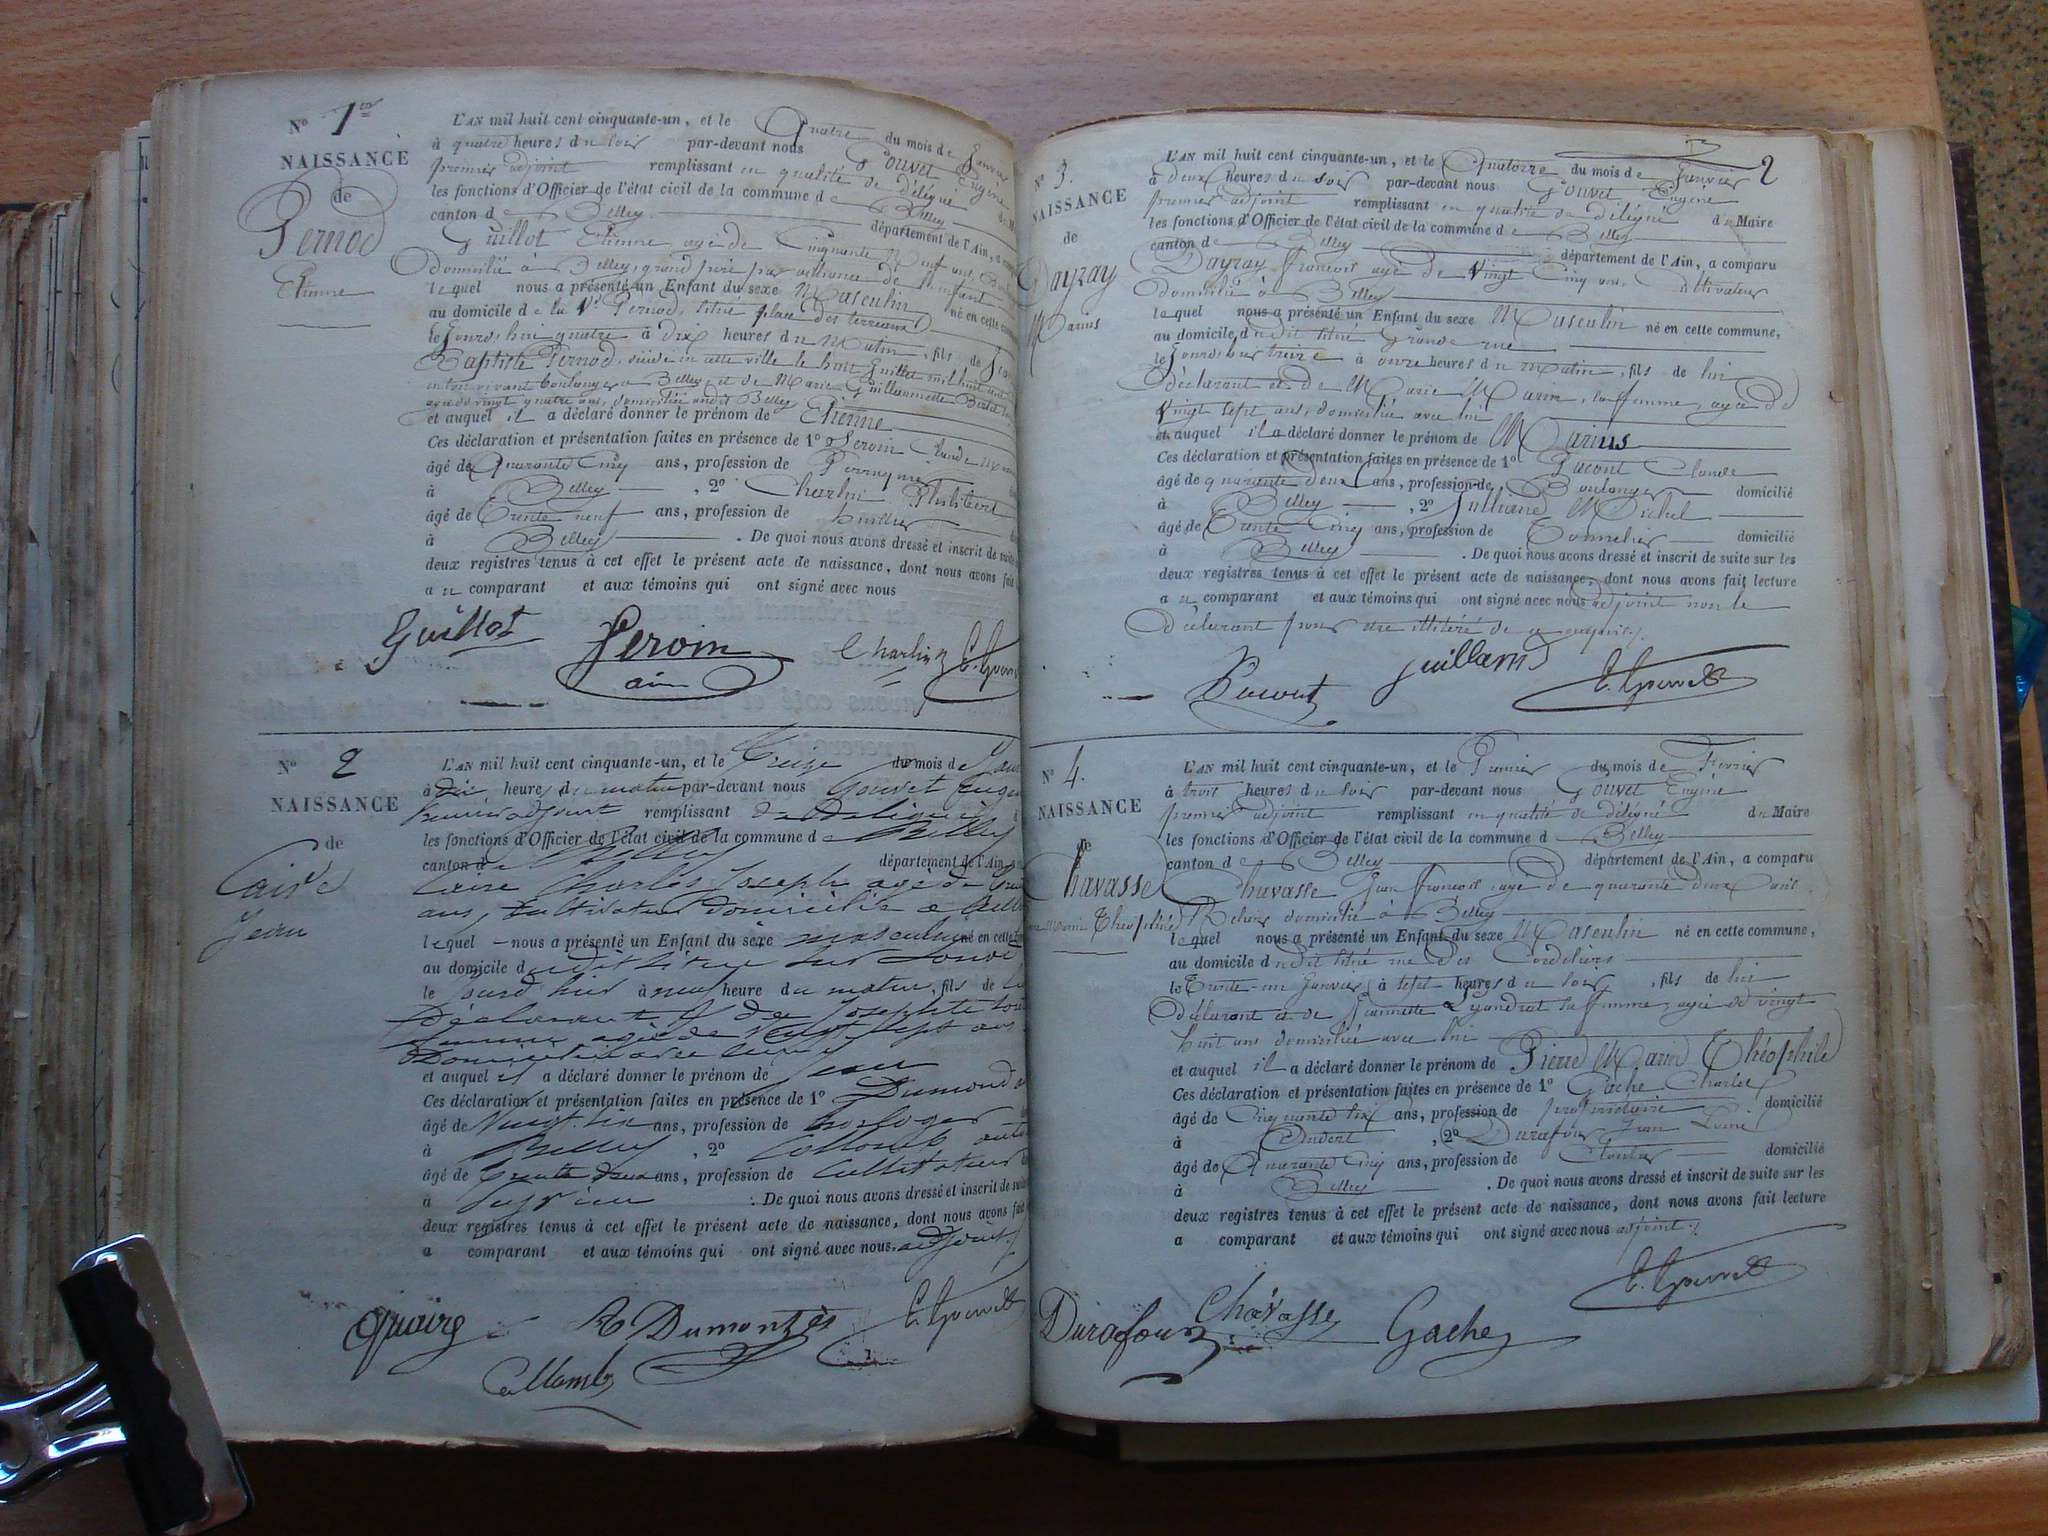 N° 1er
NAISSANCE
de
Pernod
Etienne
L'AN mil huit cent cinquante-un, et le Quatre du mois de Janvier
à quatre heures du soir par-devant nous Gouvet Eugène
premier adjoint remplissant en qualité de délégué du M
les fonctions d'Officier de l'état civil de la commune de Belley
canton de Belley département de l'Ain, a
Guillot Etienne, agé de Cinquante Neuf ans,
domicilié à Belley, grand père par alliance de l'enfant
lequel nous a présenté un Enfant du sexe Masculin né en cette
au domicile de la Ve Pernod, situé place des terreaux
le Jourd'hui quatre à dix heures du Matin, fils de
Baptiste Pernod, décédé en cette ville le huit Juillet mil huit cent
en son vivant boulanger à Belley, et de Marie Guillemette
agée de vingt quatre ans, domiciliée audit Belley
et auquel il a déclaré donner le prénom de Etienne
Ces déclaration et présentation faites en présence de 1° Peroin Claude
âgé de Quarante Cinq ans, profession de Perruquier
à Belley, 2° Charlin Philibert
âgé de Trente neuf ans, profession de huissier
à Belley. De quoi nous avons dressé et inscrit de suite
deux registres tenus à cet effet le présent acte de naissance, dont nous avons fait
au comparant et aux témoins qui ont signé avec nous
Guillot Peroin Charlin E. Gouvet
ainé
N° 2
NAISSANCE
de
Caire
Jean
L'AN mil huit cent cinquante-un, et le Treize du mois de Janv
à dix heure du matin par-devant nous Gouvet Eugène
premier adjoint remplissant de Délégué
les fonctions d'Officier de l'état civil de la commune de Belley
canton de Belley département de l'Ain,
Caire Charles Joseph agé de
ans, Cultivateur domicilié à Belley
lequel nous a présenté un Enfant du sexe masculin né en cette
au domicile dudit situé sur
le jourd'hui à neuf heure du matin, fils de lui
Déclarant & de Josephte
femme agée de Vingt sept ans
Domiciliée avec lui
et auquel il a déclaré donner le prénom de Jean
Ces déclaration et présentation faites en présence de 1° Dumond
âgé de Vingt six ans, profession de horloger
à Belley, 2° Collomb
âgé de trente deux ans, profession de Cultivateur
à . De quoi nous avons dressé et inscrit de suite
deux registres tenus à cet effet le présent acte de naissance, dont nous avons fait
a comparant et aux témoins qui ont signé avec nous adjoint
Quaire Dumont E. Gouvet
Collomb
2
N° 3.
NAISSANCE
de
Dayray
Marius
L'AN mil huit cent cinquante-un, et le Quatorze du mois de Janvier
à deux heures du soir par-devant nous Gouvet Eugène
premier adjoint remplissant en qualité de délégué du Maire
les fonctions d'Officier de l'état civil de la commune de Belley
canton de Belley département de l'Ain, a comparu
Dayray françois agé de Vingt Cinq ans, Cultivateur
domicilié à Belley
lequel nous a présenté un Enfant du sexe Masculin né en cette commune,
au domicile dudit situé Grande rue
le Jourd'hui treize à onze heures du matin, fils de lui
déclarant et de Marie Marin, sa femme, agée de
Vingt sept ans, domiciliée avec lui
et auquel il a déclaré donner le prénom de Marius
Ces déclaration et présentation faites en présence de 1° Pacout Claude
âgé de quarante deux ans, profession de Boulanger domicilié
à Belley, 2° Julliand Michel
âgé de Trente Cinq ans, profession de Tonnelier domicilié
à Belley. De quoi nous avons dressé et inscrit de suite sur les
deux registres tenus à cet effet le présent acte de naissance, dont nous avons fait lecture
au comparant et aux témoins qui ont signé avec nous adjoint non le
déclarant pour être illitéré de ce enquis
Pacout Juilland E. Gouvet
N° 4.
NAISSANCE
de
Chavasse
Marin Théophile
L'AN mil huit cent cinquante-un, et le Premier du mois de Février
à trois heures du soir par-devant nous Gouvet Eugène
premier adjoint remplissant en qualité de délégué du Maire
les fonctions d'Officier de l'état civil de la commune d Belley
canton de Belley département de l'Ain, a comparu
Chavasse Jean françois, agé de quarante deux ans,
Relieur domicilié à Belley
lequel nous a présenté un Enfant du sexe Masculin né en cette commune,
au domicile dudit situé rue des Cordeliers
le Trente-un Janvier, à sept heures du soir, fils de lui
déclarant et de Jeannette sa femme, agée de vingt
huit ans domiciliée avec lui
et auquel il a déclaré donner le prénom de Pierre Marin Théophile
Ces déclaration et présentation faites en présence de 1° Gache Charles
âgé de Cinquante six ans, profession de propriétaire domicilié
à Andert, 2° Durafour Jean Louis
âgé de Quarante Cinq ans, profession de Cloutier domicilié
à Belley. De quoi nous avons dressé et inscrit de suite sur les
deux registres tenus à cet effet le présent acte de naissance, dont nous avons fait lecture
a comparant et aux témoins qui ont signé avec nous adjoint
E. Gouvet
Durafour Chavasse Gache